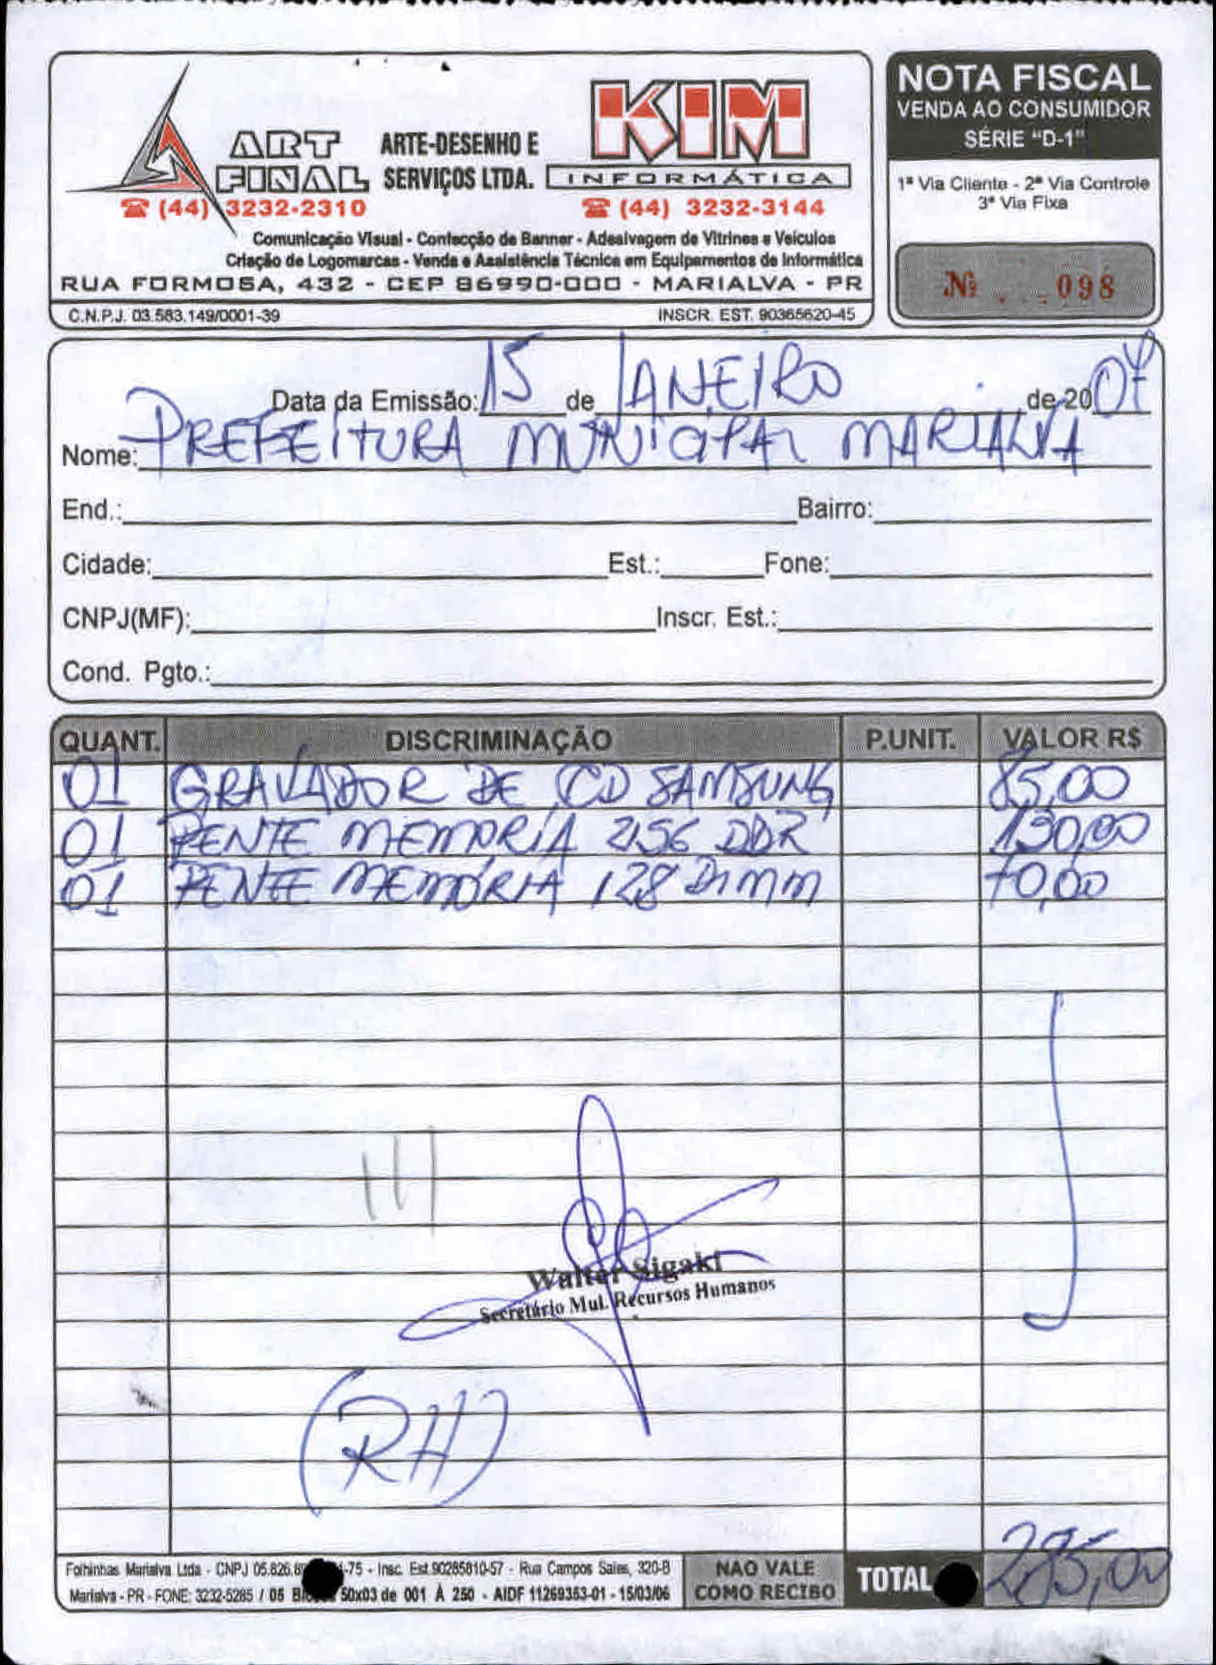 ART
FINAL
ARTE-DESENHO E
SERVIÇOS LTDA.
KIM
INFORMÁTICA
☎ (44) 3232-2310
☎ (44) 3232-3144
Comunicação Visual - Confecção de Banner - Adesivagem de Vitrines e Veículos
Criação de Logomarcas - Venda e Assistência Técnica em Equipamentos de Informática
RUA FORMOSA, 432 - CEP 86990-000 - MARIALVA - PR
C.N.P.J. 03.583.149/0001-39 INSCR. EST. 90365620-45
NOTA FISCAL
VENDA AO CONSUMIDOR
SÉRIE "D-1"
1ª Via Cliente - 2ª Via Controle
3ª Via Fixa
Nº 098
Data da Emissão: 15 de JANEIRO de 2007
Nome: PREFEITURA MUNICIPAL MARIALVA
End.: Bairro:
Cidade: Est.: Fone:
CNPJ(MF): Inscr. Est.:
Cond. Pgto.:
QUANT. DISCRIMINAÇÃO P.UNIT. VALOR R$
01 GRAVADOR DE CD SAMSUNG 85,00
01 PENTE MEMORIA 256 DDR 130,00
01 PENTE MEMÓRIA 128 DIMM 70,00
Walter Sigaki
Secretário Mul. Recursos Humanos
(RH)
Folhinhas Marialva Ltda - CNPJ 05.826. -75 - Insc. Est.90285810-57 - Rua Campos Sales, 320-B
Marialva - PR - FONE: 3232-5285 / 05 50x03 de 001 À 250 - AIDF 11269353-01 - 15/03/06
NAO VALE
COMO RECIBO
TOTAL 285,00